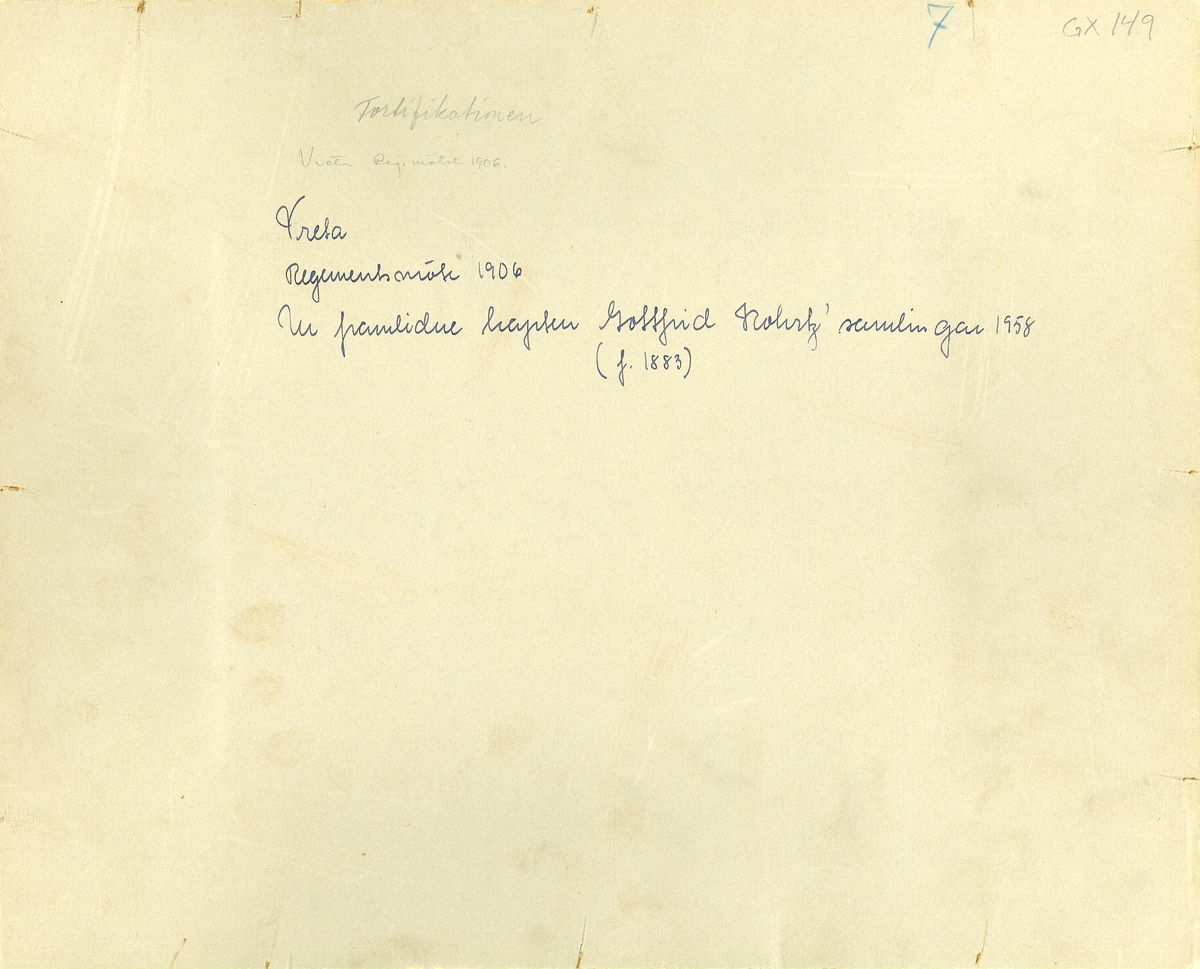 7
GX 149
Fortifikationen
Vreta Reg. möte 1906.
Vreta
Regementsmöte 1906
Ur framlidne kapten Gottfrid Rohrtz' samlingar 1958
(f. 1883)